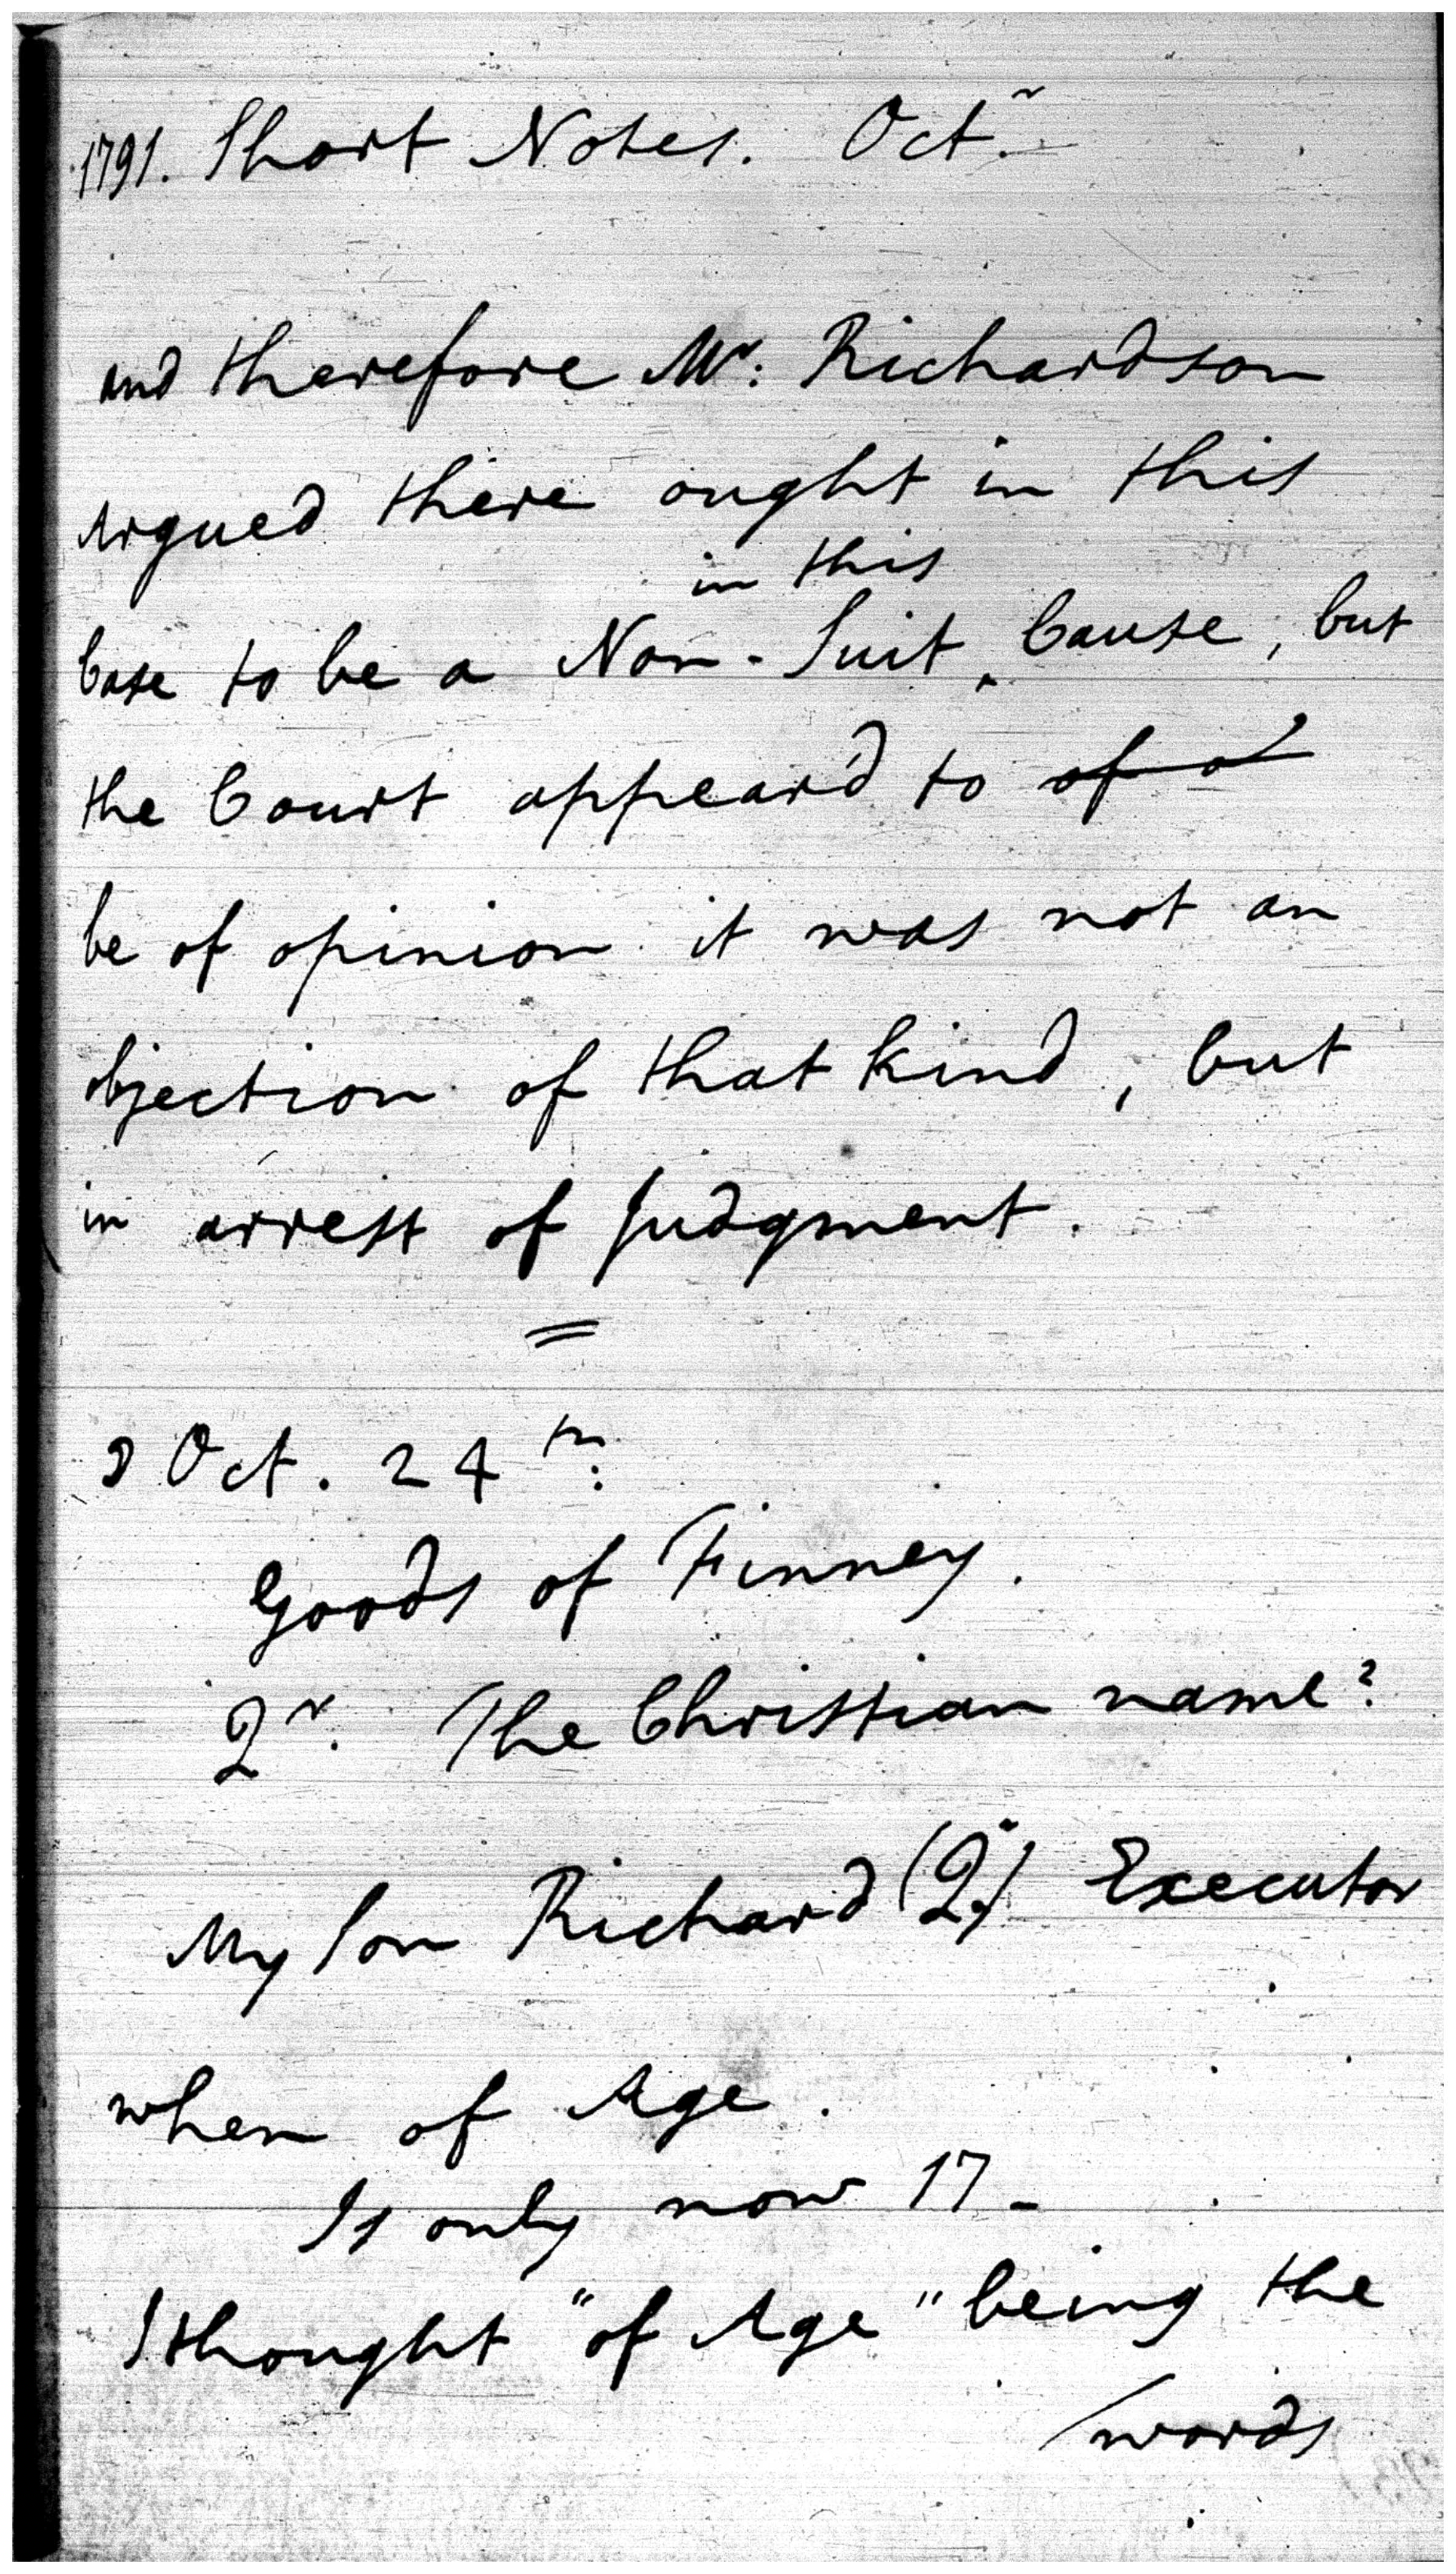 1791. Short Notes. Octr.
and therefore Mr: Richardson
argued there ought in this
in this
Case to be a Non-Suit ‸ Cause, but
the Court appear'd to of a
be of opinion it was not an
objection of that kind, but
in arrest of Judgment.
=
☽ Oct. 24th:
Goods of Finney.
Qr. The Christian name?
My Son Richard (Q.) Executor
when of Age.
Is only now 17_
I thought "of Age" being the
/words